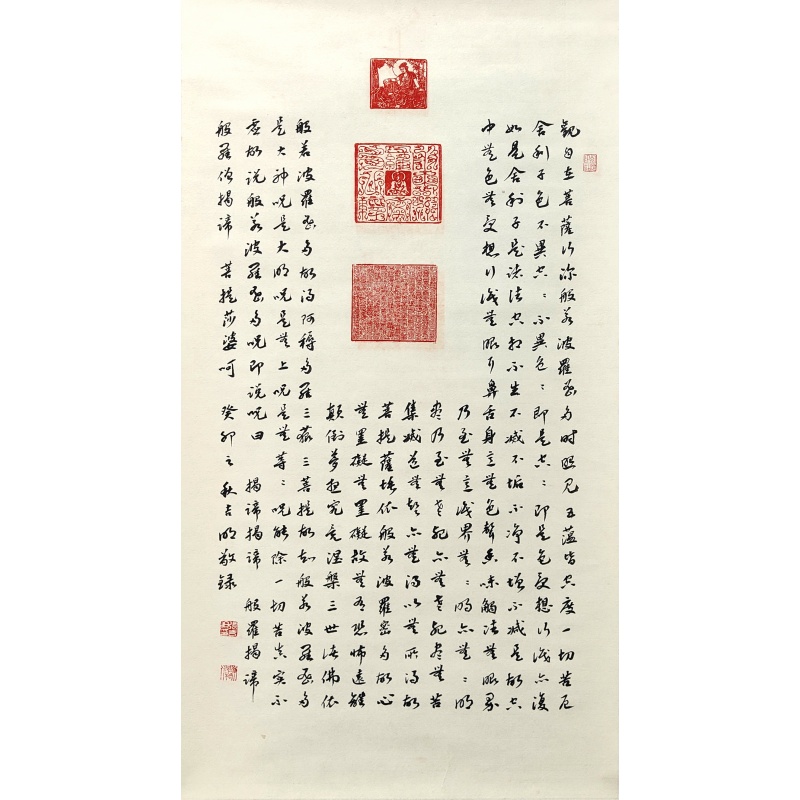 觀自在菩薩行深般若波羅蜜多時照見五蘊皆空度一切苦厄
舍利子色不異空：不異色：即是空：即是色受想行識亦復
如是舍利子是諸法空相不生不滅不垢不净不增不減是故空
中無色無受想行識無眼耳鼻舌身意無色聲香味觸法無眼界
乃至無意識界無：明亦無：明
盡乃至無老死亦無老死盡無苦
集滅道無智亦無得以無所得故
菩提薩埵依般若波羅密多故心
無罣礙無罣礙故無有恐怖遠離
顛倒夢想究竟涅槃三世諸佛依
般若波羅蜜多故得阿耨多羅三藐三菩提故知般若波羅蜜多
是大神呪是大明呪是無上呪是無等：呪能除一切苦真實不
虛故説般若波羅蜜多呪即説呪曰 揭諦揭諦 般羅揭諦
般羅僧揭諦 菩提莎婆呵 癸卯之秋吉明敬録